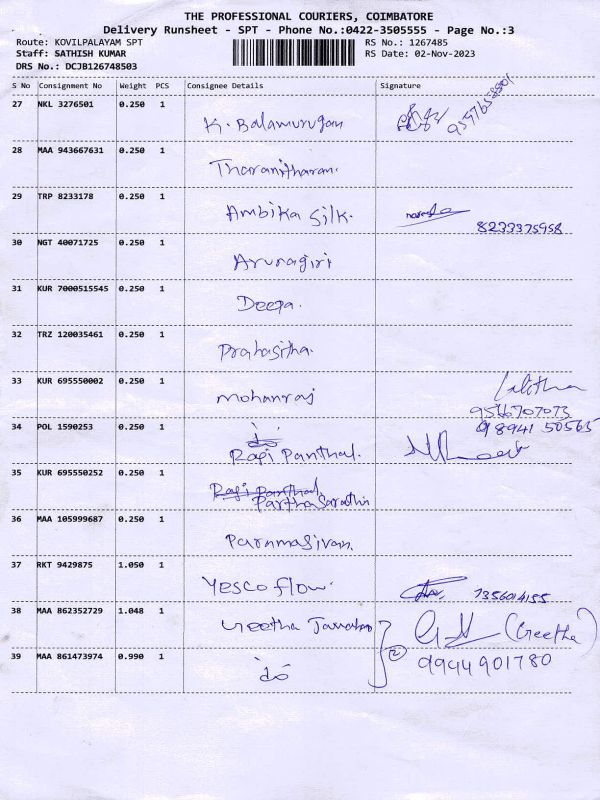 THE PROFESSIONAL COURIERS, COIMBATORE
Delivery Runsheet - SPT - Phone No.:0422-3505555 - Page No.:3
Route: KOVILPALAYAM SPT RS No.: 1267485
Staff: SATHISH KUMAR RS Date: 02-Nov-2023
DRS No.: DCJB126748503
S No Consignment No Weight PCS Consignee Details Signature
27 NKL 3276501 0.250 1 K. Balamurugan
28 MAA 943667631 0.250 1 Tharanitharan.
29 TRP 8233178 0.250 1 Ambika Silk.
8233375958
30 NGT 40071725 0.250 1 Arunagiri
31 KUR 7000515545 0.250 1 Deepa.
32 TRZ 120035461 0.250 1 Prahasitha.
33 KUR 695550002 0.250 1 Mohanraj Lalitha
9566707073
34 POL 1590253 0.250 1 do 98941 50565
Ragi Panthal.
35 KUR 695550252 0.250 1 Ragi Panthal
Parthasarathin
36 MAA 105999687 0.250 1 Paramasivan.
37 RKT 9429875 1.050 1 Yesco flow. 7356014155
38 MAA 862352729 1.048 1 Geetha (Geetha)
39 MAA 861473974 0.990 1 do 2 9944901780